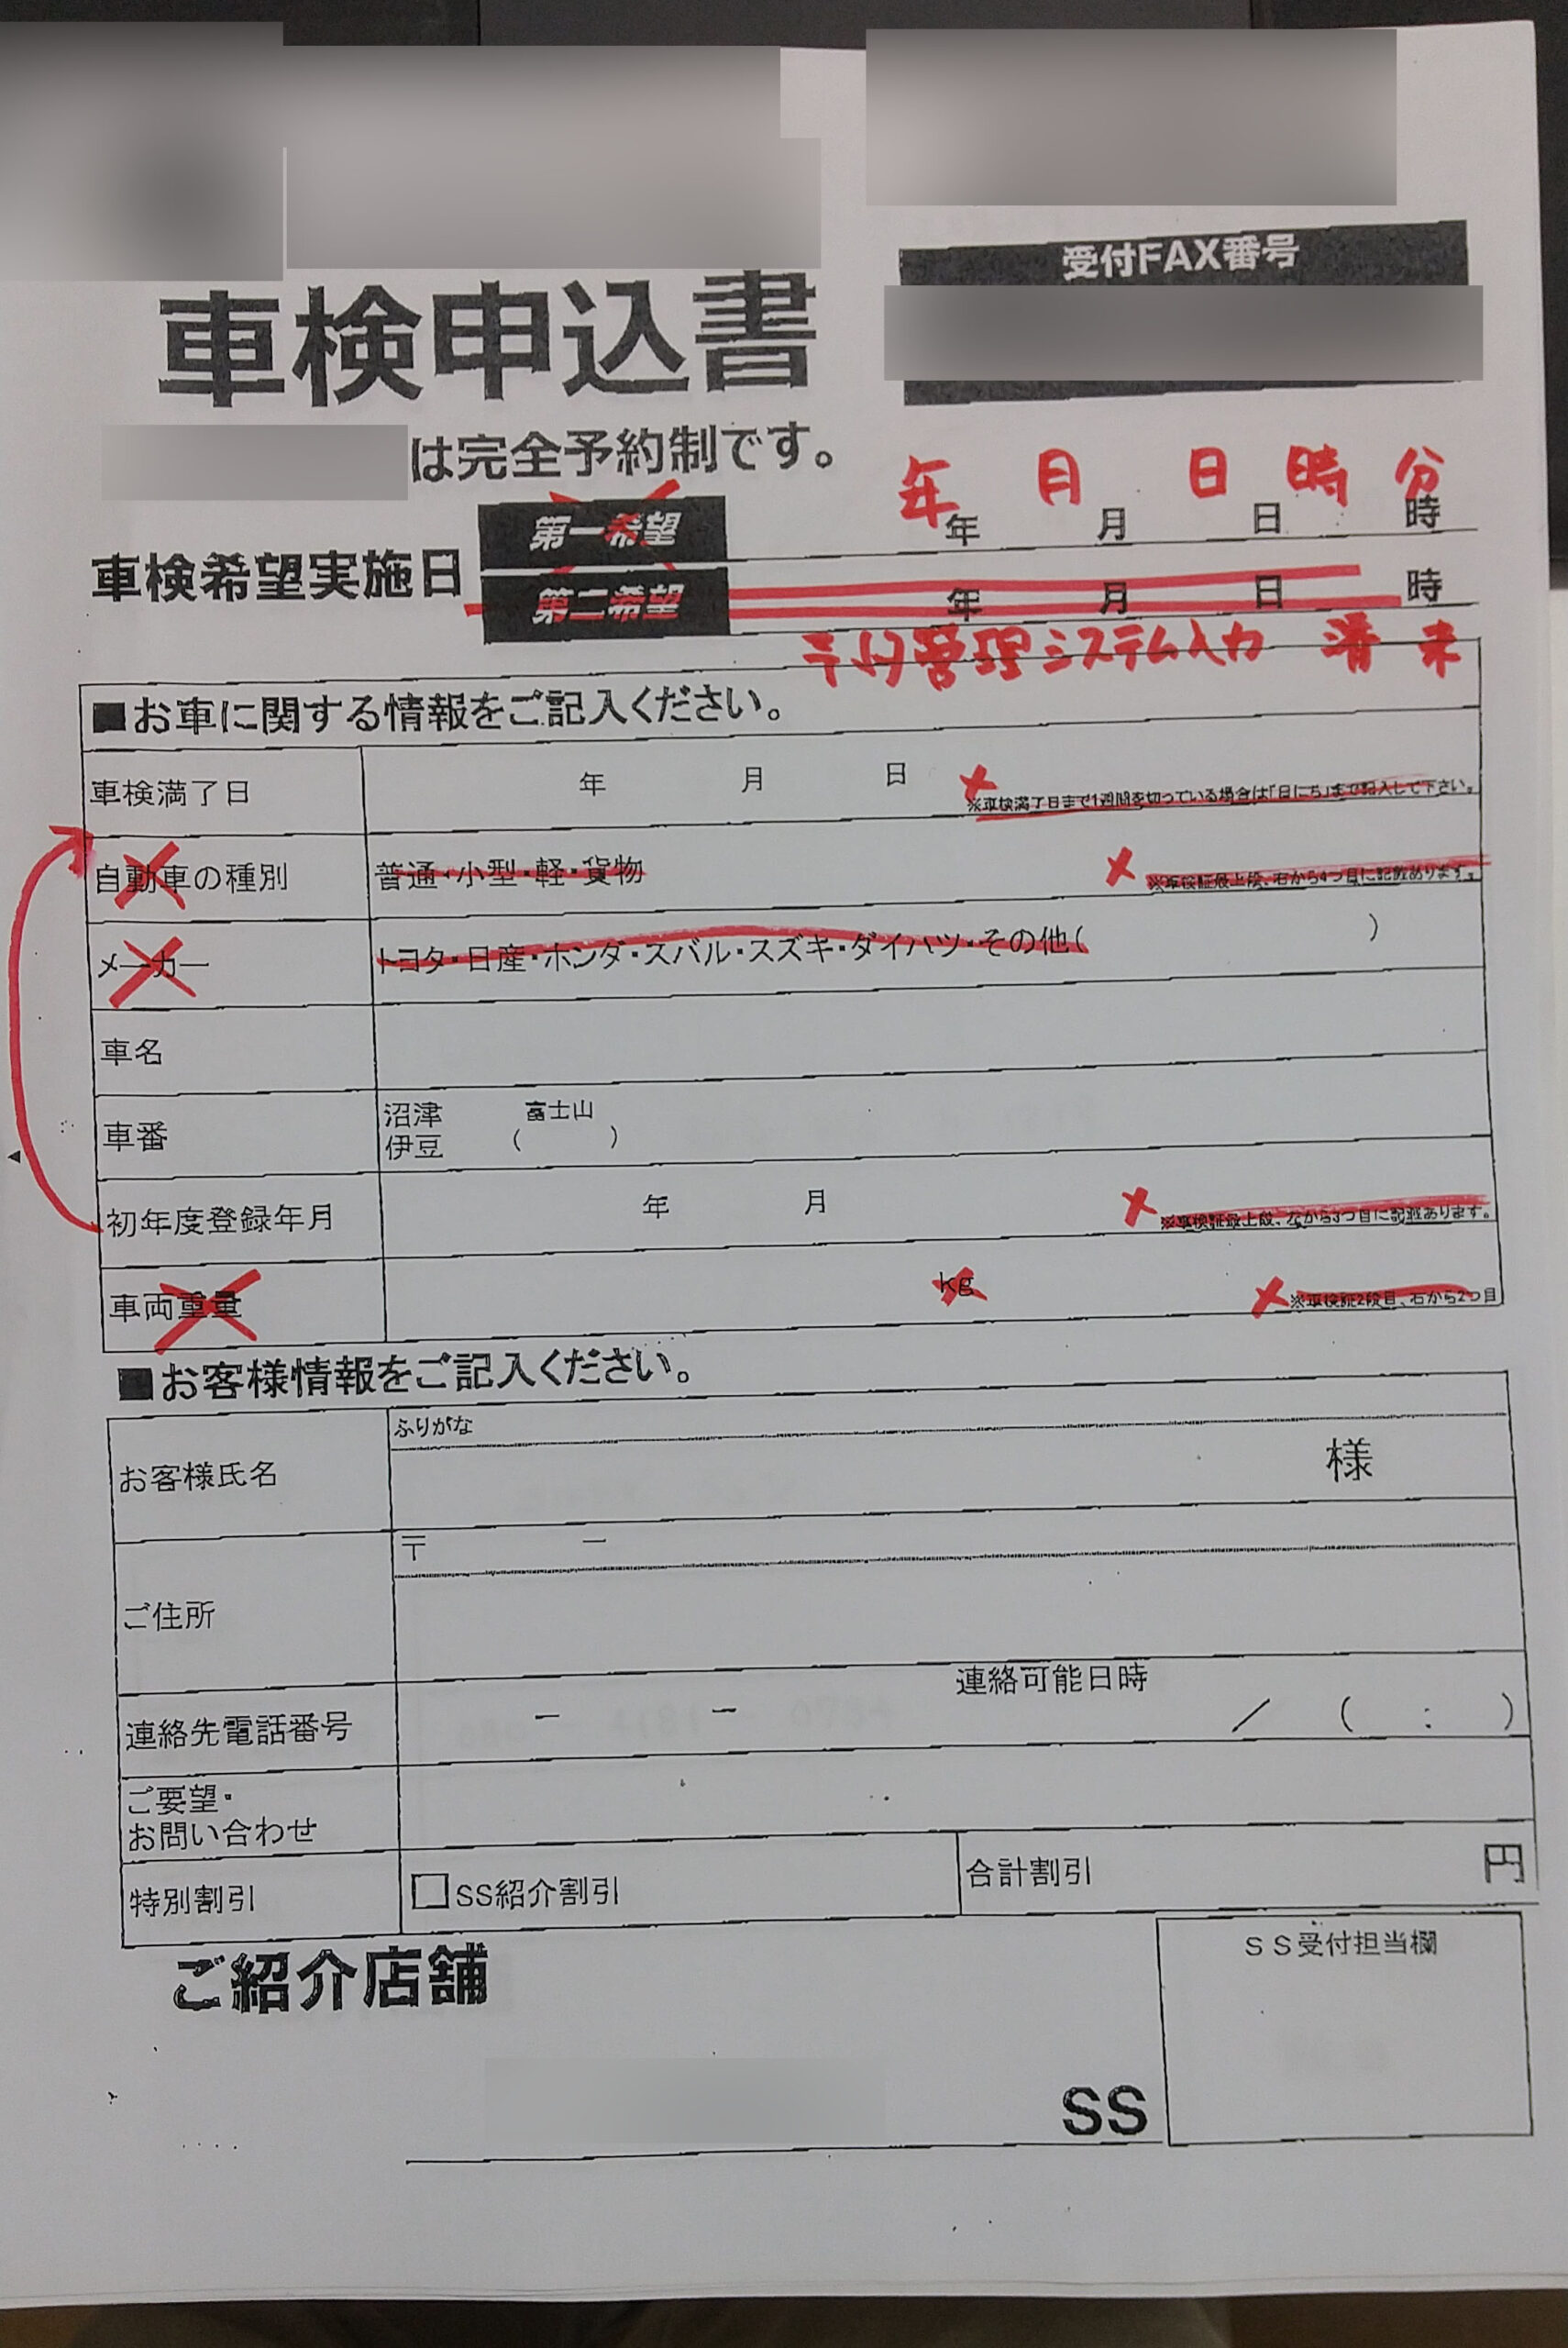 受付FAX番号
車検申込書
は完全予約制です。
年 月 日 時 分
車検希望実施日
第一希望 年 月 日 時
第二希望 年 月 日 時
予約管理システム入力 済 未
■お車に関する情報をご記入ください。
車検満了日 年 月 日 ※車検満了日まで1週間を切っている場合は「日にち」まで記入して下さい。
自動車の種別 普通・小型・軽・貨物 ※車検証最上段、右から4つ目に記載あります。
メーカー トヨタ・日産・ホンダ・スバル・スズキ・ダイハツ・その他( )
車名
車番 沼津 富士山
伊豆 ( )
初年度登録年月 年 月 ※車検証最上段、左から3つ目に記載あります。
車両重量 kg ※車検証2段目、右から2つ目
■お客様情報をご記入ください。
ふりがな
お客様氏名 様
〒 ー
ご住所
連絡可能日時
連絡先電話番号 ー ー / ( : )
ご要望・
お問い合わせ
特別割引 □SS紹介割引 合計割引 円
ご紹介店舗
SS受付担当欄
SS